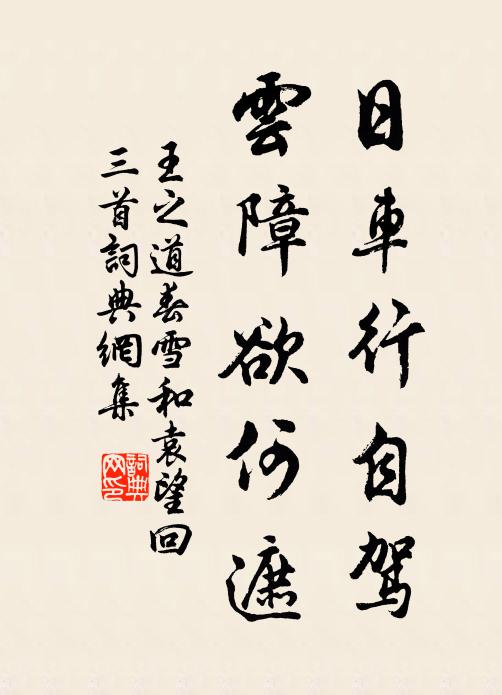 日車行自駕
雲障欲何遮
王之道春雪和袁望回
三首詞典網集
詞典
网印